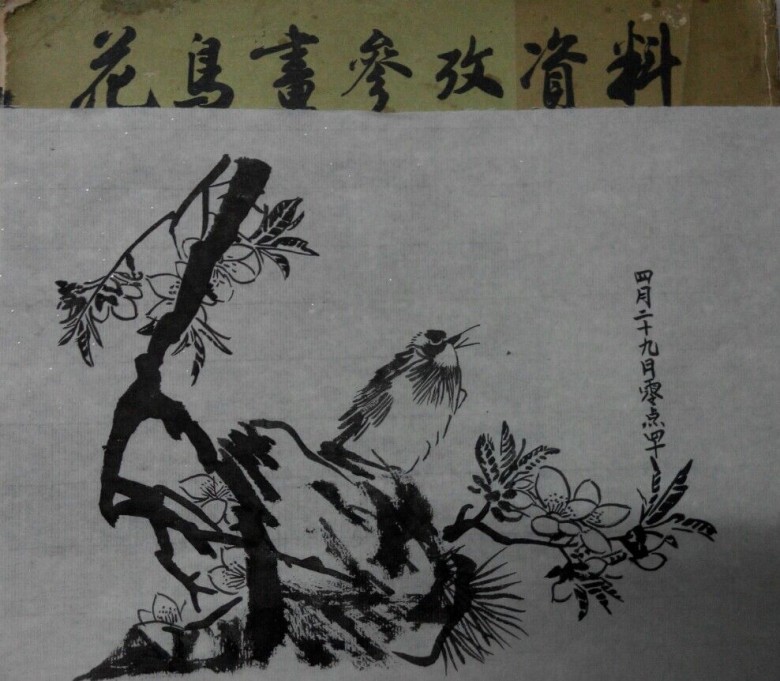 花鳥畫參攷資料
四月二十九日零点四十